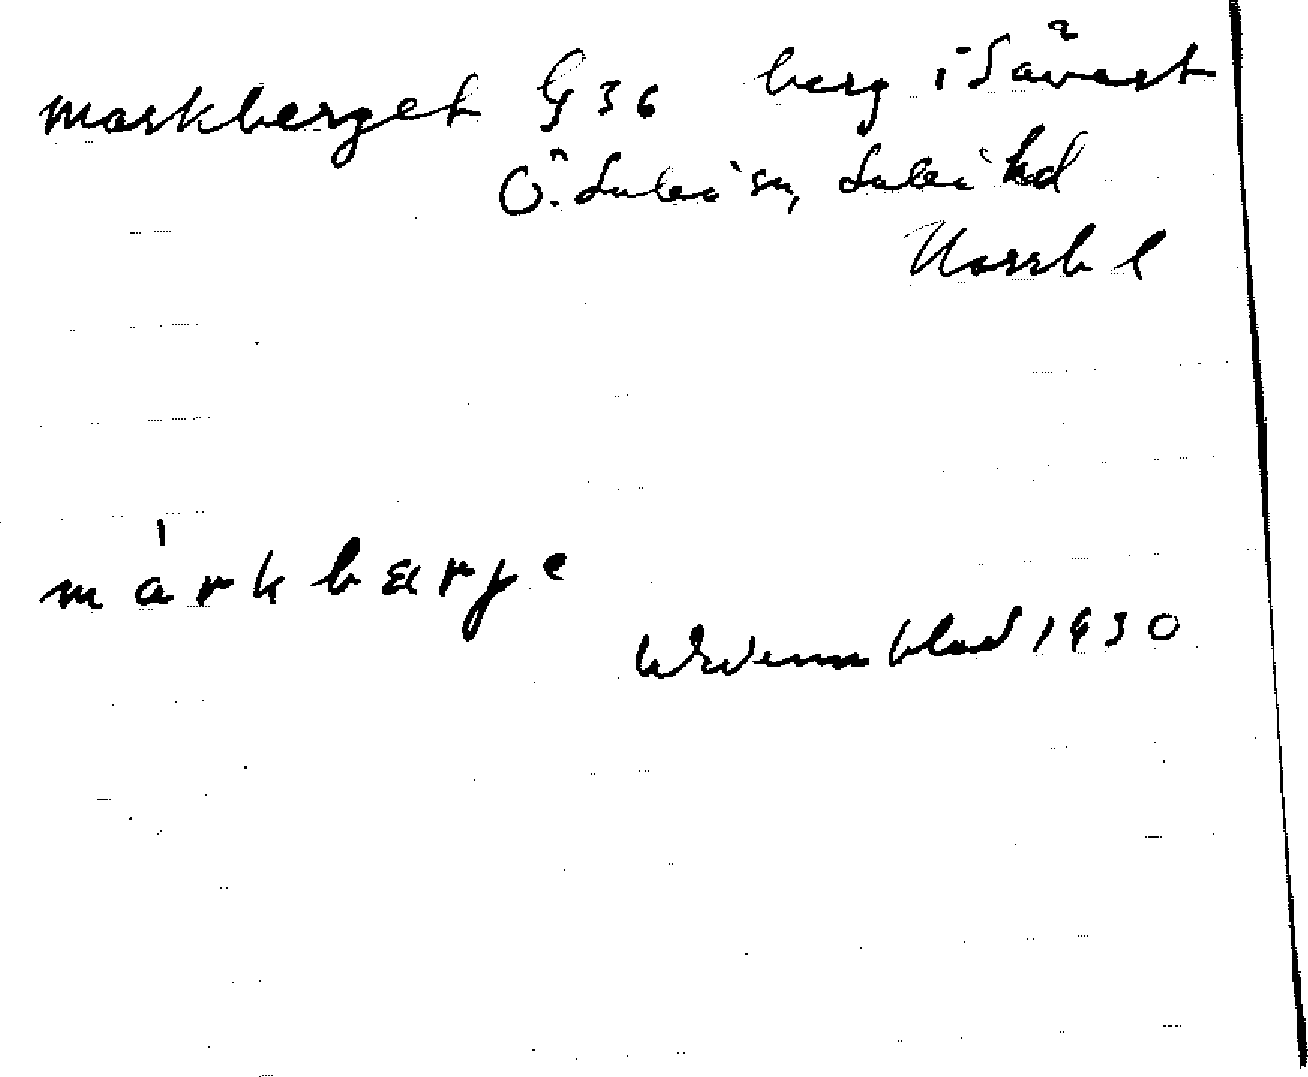 Markberget G 36 berg i Sävast
Ö. Luleå sn, Luleå hd
Norrb l
márkbærje
Wennblad 1930